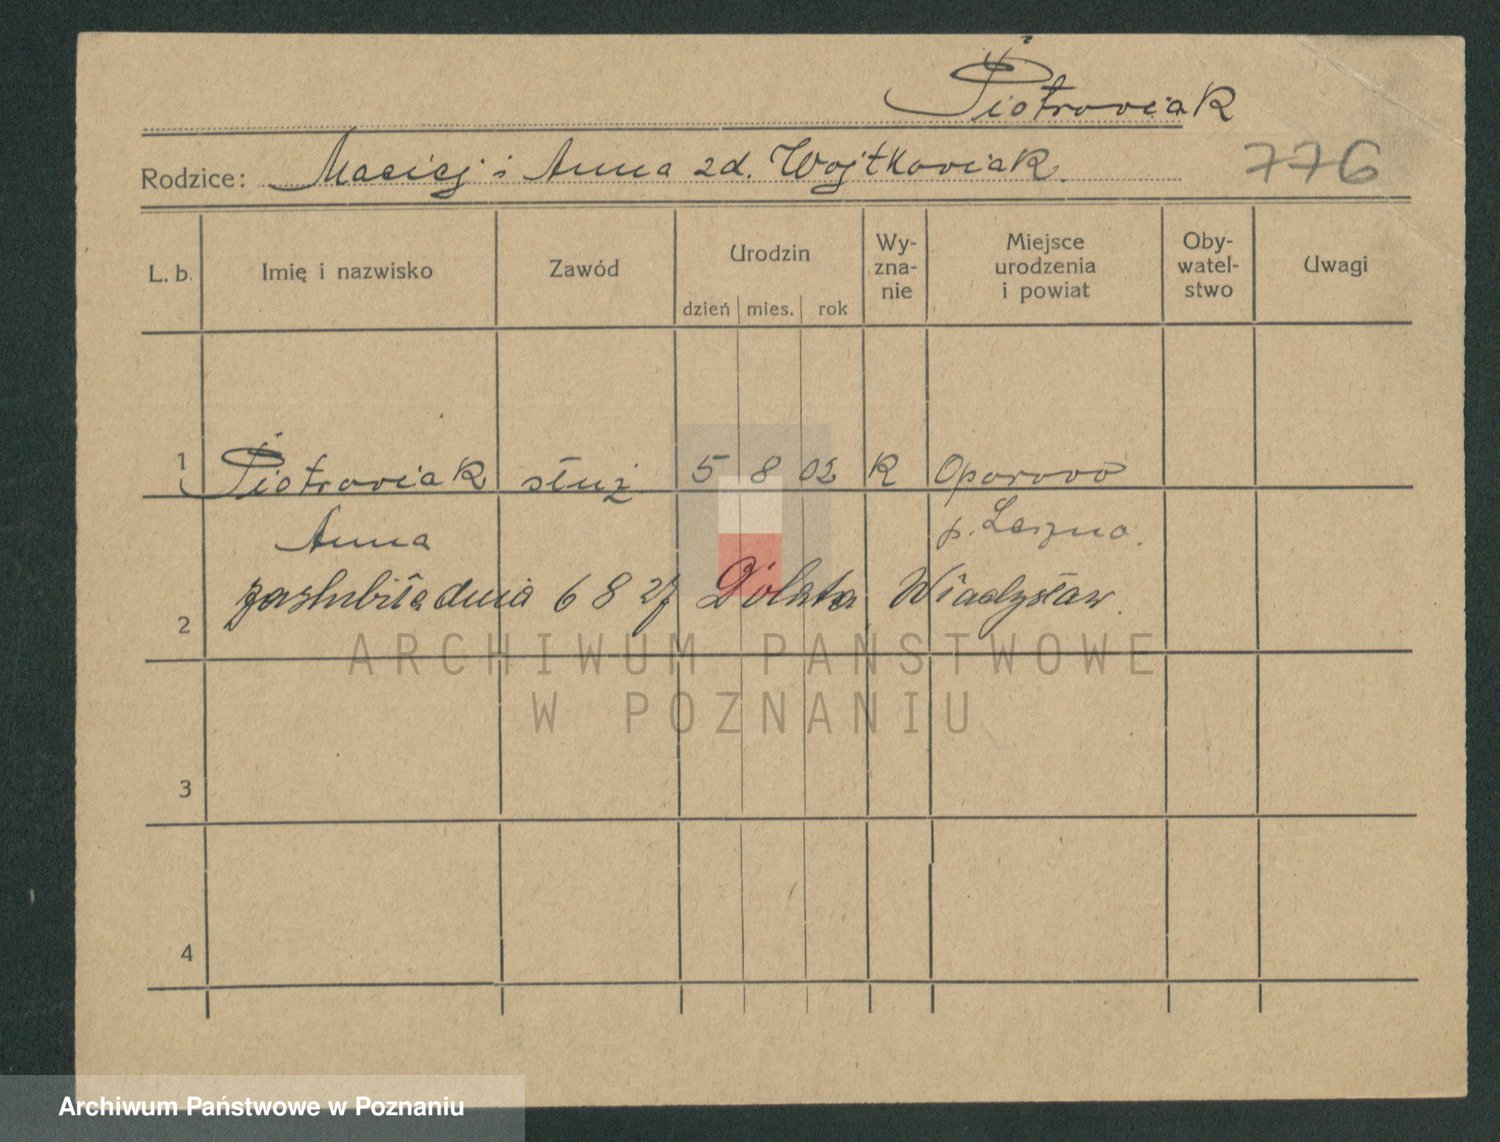 Piotrowiak
Rodzice: Maciej i Anna zd. Wojtkowiak.
776
L. b. Imię i nazwisko Zawód Urodzin dzień mies. rok Wyznanie Miejsce urodzenia i powiat Obywatelstwo Uwagi
1 Piotrowiak służ 5 8 02 K Oporowo
Anna p. Leszno.
2 zaślubiła dnia 6 8 27 Dolata Władysław.
3
4
ARCHIWUM PAŃSTWOWE
W POZNANIU
Archiwum Państwowe w Poznaniu